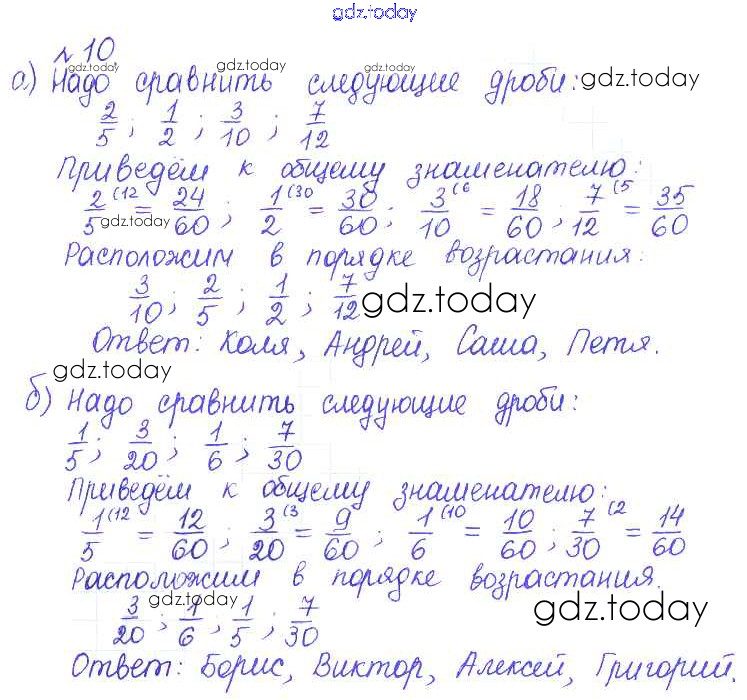 gdz.today
№10.
gdz.today gdz.today
а) Надо сравнить следующие дроби: gdz.today
2/5; 1/2; 3/10; 7/12
Приведём к общему знаменателю:
2/5 (12 = 24/60; 1/2 (30 = 30/60; 3/10 (6 = 18/60; 7/12 (5 = 35/60
gdz.today
Расположим в порядке возрастания:
3/10; 2/5; 1/2; 7/12
gdz.today
Ответ: Коля, Андрей, Саша, Петя.
gdz.today
б) Надо сравнить следующие дроби:
1/5; 3/20; 1/6; 7/30
Приведём к общему знаменателю:
1/5 (12 = 12/60; 3/20 (3 = 9/60; 1/6 (10 = 10/60; 7/30 (2 = 14/60
Расположим в порядке возрастания.
gdz.today gdz.today
3/20; 1/6; 1/5; 7/30
Ответ: Борис, Виктор, Алексей, Григорий.